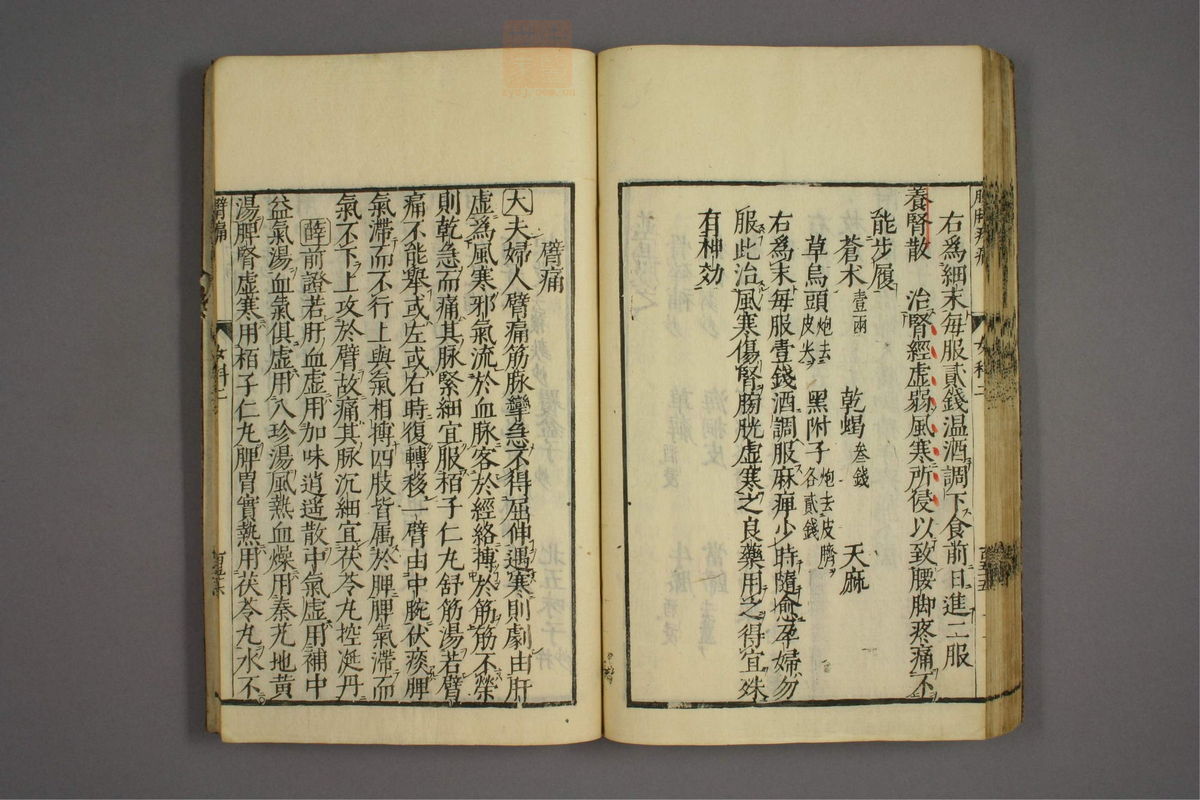 右爲細末每服貳錢温酒調下食前日進二服
養腎散 治腎經虛弱風寒所侵以致腰脚疼痛不
能步履
蒼朮壹兩 乾蝎叁錢 天麻
草烏頭炮去皮尖 黑附子炮去皮臍各貳錢
右爲末每服壹錢酒調服麻痺少時隨愈孕婦勿
服此治風寒傷腎膀胱虛寒之良藥用之得宜殊
有神効
臂痛
大夫婦人臂痛筋脉攣急不得屈伸遇寒則劇由肝
虛爲風寒邪氣流於血脉客於經絡摶於筋筋不榮
則乾急而痛其脉緊細宜服栢子仁丸舒筋湯若臂
痛不能舉或左或右時復轉移一臂由中脘伏痰脾
氣滯而不行上與氣相摶四肢皆属於脾脾氣滯而
氣不下上攻於臂故痛其脉沉細宜茯苓丸控涎丹
薛前證若肝血虛用加味逍遥散中氣虛用補中
益氣湯血氣俱虛用八珍湯風熱血燥用秦艽地黄
湯脾腎虛寒用栢子仁丸脾胃實熱用茯苓丸水不
臂痛
女科二